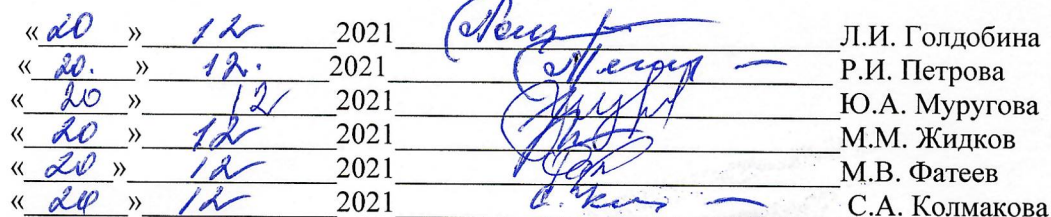 « 20 » 12 2021 Л.И. Голдобина
« 20. » 12. 2021 Р.И. Петрова
« 20 » 12 2021 Ю.А. Муругова
« 20 » 12 2021 М.М. Жидков
« 20 » 12 2021 М.В. Фатеев
« 20 » 12 2021 С.А. Колмакова